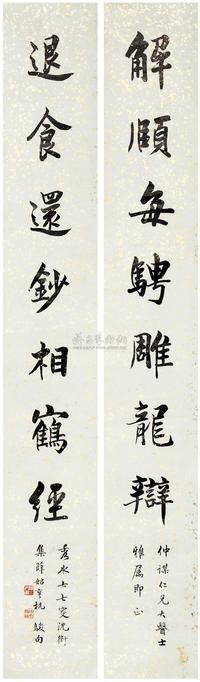 解頤每騁雕龍辯
仲謀仁兄大醫士
雅屬即正
退食還鈔相鶴經
秀水七七叟沈衛
集薛始亨杭駿句